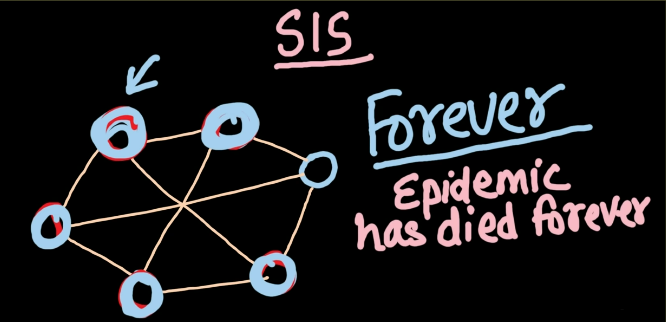 SIS
Forever
Epidemic
has died forever